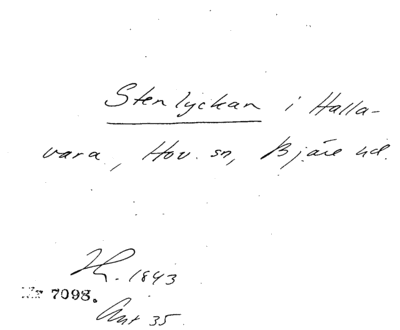 Stenlyckan i Halla-
vara, Hov. sn, Bjäre hd.
H. 1843
Nr 7098.
Ant 35